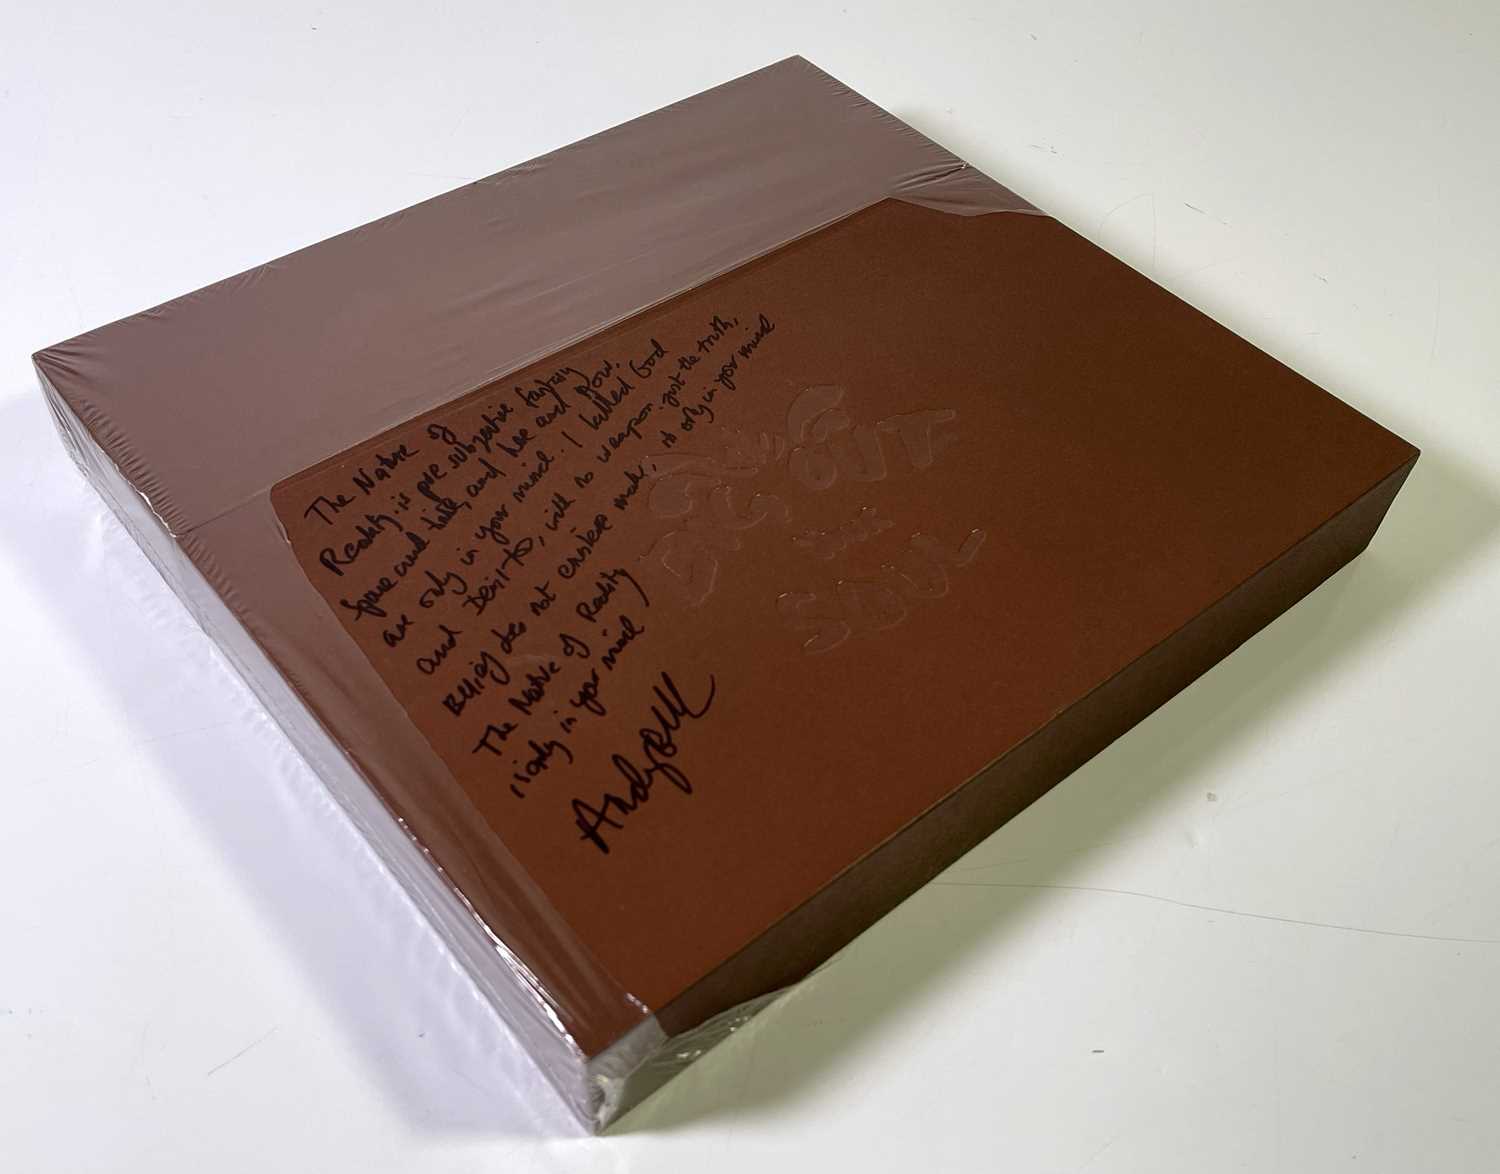 The Nature of
Reality is pure subjective fantasy
Space and time, and here and Now.
are only in your mind. I killed God
and Devil to, with no weapon. just the truth,
Belief does not existence make, its only in your mind
The Nature of Reality
is only in your mind
Andy Bell
DIG OUT
YOUR
SOUL